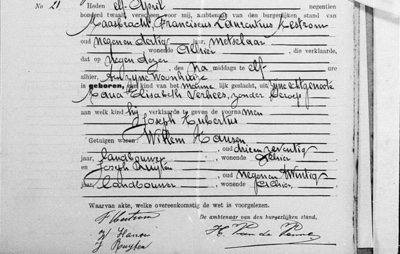 No 21
Heden elf April negentien
honderd twaalf, verscheen voor mij, ambtenaar van den burgerlijken stand van
Maasbracht, Franciscus Laurentius
oud negen en dertig jaar, metselaar
wonende Alhier, die verklaarde,
dat op negen dezer, des na middags te elf ure
alhier, Aan zijne Woonhuize
is geboren, een kind van het mannelijk geslacht, uit zijne echtgenoote
Maria Elisabeth Verhees, zonder beroep
aan welk kind hij verklaarde te geven de voornamen
Joseph Hubertus
Getuigen waren: Willem Hansen
oud zeventig
jaar, landbouwer, wonende Alhier
en Joseph Ruyten, oud negen en twintig
jaar, landbouwer, wonende Alhier
Waarvan akte, welke overeenkomstig de wet is voorgelezen.
De ambtenaar van den burgerlijken stand,
W Hansen
J Ruyten